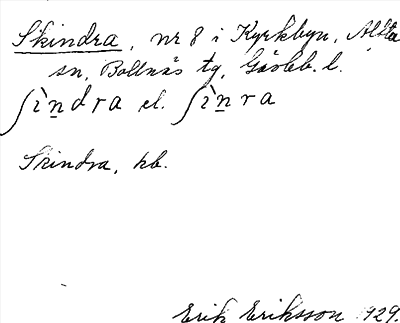 Skindra, nr 8 i Kyrkbyn, Alfta
sn, Bollnäs tg, Gävleb. l.
ʃìndra el. ʃìnra
Skindra, kb.
Erik Eriksson 1929.